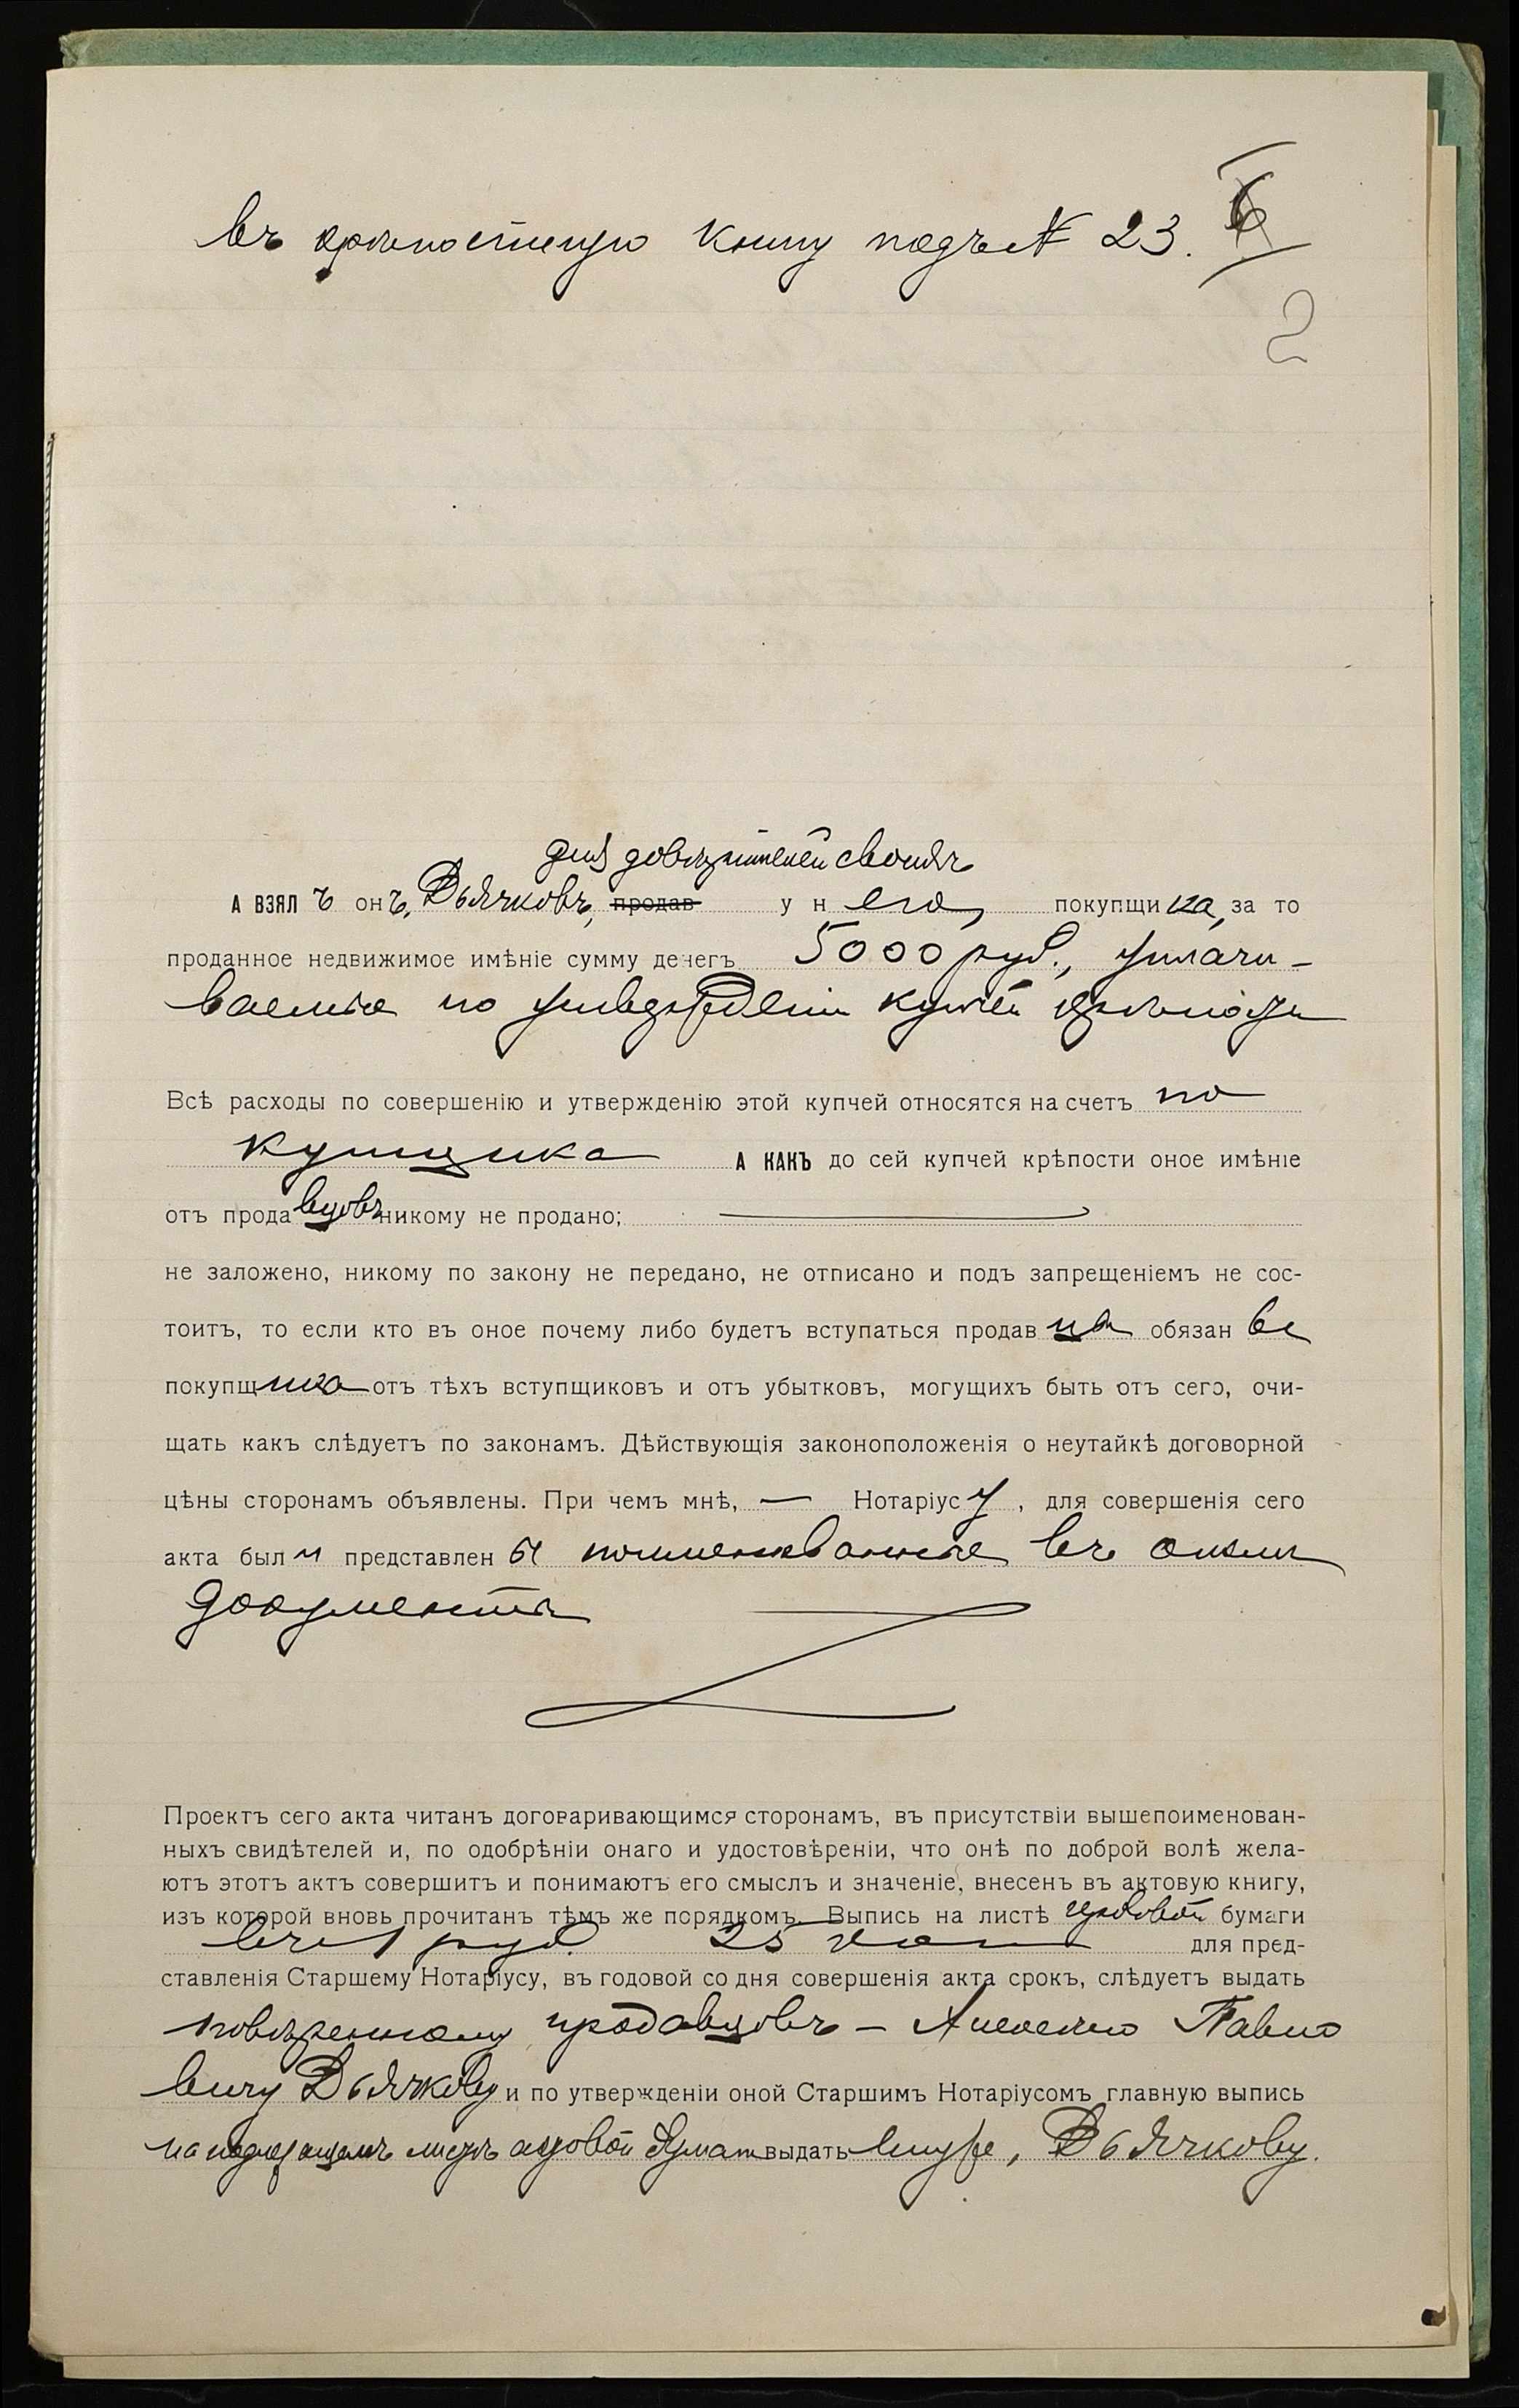 въ крѣпостную книгу подъ № 23.
6
2
для довѣрителей своихъ
А ВЗЯЛЪ онъ, Дьячковъ, продав у него, покупщика, за то
проданное недвижимое имѣніе сумму денегъ 5000 руб., уплачи-
ваемые по утвержденіи купчей крѣпости
Всѣ расходы по совершенію и утвержденію этой купчей относятся на счетъ по
купщика А КАКЪ до сей купчей крѣпости оное имѣніе
отъ продавцовъ никому не продано;
не заложено, никому по закону не передано, не отписано и подъ запрещеніемъ не сос-
тоитъ, то если кто въ оное почему либо будетъ вступаться продавцы обязаны
покупщика отъ тѣхъ вступщиковъ и отъ убытковъ, могущихъ быть отъ сего, очи-
щать какъ слѣдуетъ по законамъ. Дѣйствующія законоположенія о неутайкѣ договорной
цѣны сторонамъ объявлены. При чемъ мнѣ, — Нотаріусу, для совершенія сего
акта были представлены поименованные въ описи
документы
Проектъ сего акта читанъ договаривающимся сторонамъ, въ присутствіи вышепоименован-
ныхъ свидѣтелей и, по одобрѣніи онаго и удостовѣреніи, что онѣ по доброй волѣ жела-
ютъ этотъ актъ совершить и понимаютъ его смыслъ и значеніе, внесенъ въ актовую книгу,
изъ которой вновь прочитанъ тѣмъ же порядкомъ. Выпись на листѣ гербовой бумаги
въ 1 руб. 25 коп для пред-
ставленія Старшему Нотаріусу, въ годовой со дня совершенія акта срокъ, слѣдуетъ выдать
повѣренному продавцовъ — Алексѣю Павло
вичу Дьячкову и по утвержденіи оной Старшимъ Нотаріусомъ главную выпись
на подлежащемъ листѣ актовой бумаги выдать ему же, Дьячкову.